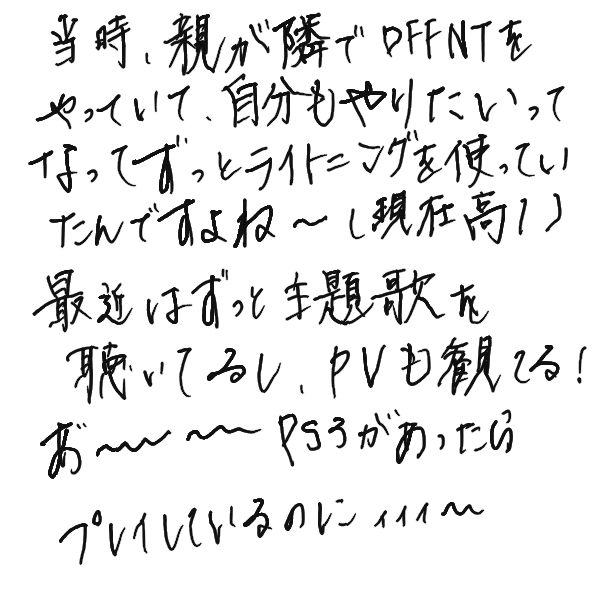 当時、親が隣でDFFNTを
やっていて、自分もやりたいって
なってずっとライトニングを使ってい
たんですよね～(現在高1)
最近はずっと主題歌を
聴いてるし、PVも観てる!
あ゛～～～PS3があったら
プレイしているのに,,,,～